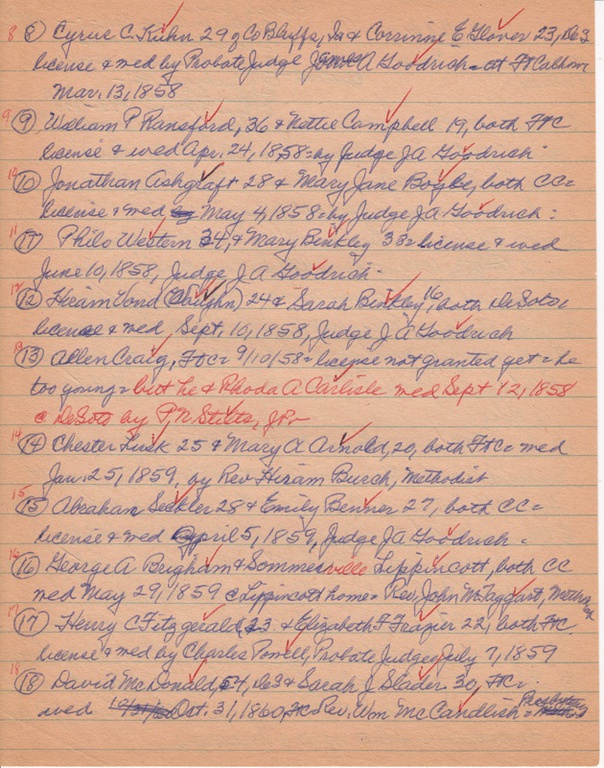 8 (8) Cyrus C. Kuhn 29 of Co Bluffs, Ia & Corrinne E Glover 23, De S
license & wed by Probate Judge James A Goodrich = at Ft Calhoun
Mar. 13, 1858
9 (9) William P Ransford, 36 & Nettie Campbell 19, both FtC
license & wed Apr. 24, 1858 = by Judge JA Goodrich
10 (10) Jonathan Ashgraft 28 & Mary Jane Bogbe, both CC =
license & wed May 4, 1858 = by Judge JA Goodrich =
11 (11) Philo Western 34, & Mary Binkley 33 = license & wed
June 10, 1858, Judge J A Goodrich
12 (12) Hiram Vond (Vaughn) 24 & Sarah Binkley 16, both DeSoto =
license & wed Sept. 10, 1858, Judge J A Goodrich
13 (13) Allen Craig, FtC = 9/10/58 = license not granted yet = he
too young = but he & Rhoda A Carlisle wed Sept 12, 1858
@ DeSoto by P. N Stilts, JP
14 (14) Chester Lusk 25 & Mary A Arnold, 20, both FtC = wed
Jan. 25, 1859, by Rev. Hiram Burch, Methodist
15 (15) Abraham Seckler 28 & Emily Benner 27, both CC =
license & wed April 5, 1859, Judge JA Goodrich
16 (16) George A Brigham & Sommesville Lippincott, both CC
wed May 29, 1859 @ Lippincott home = Rev. John M Taggart, Methodist
17 (17) Henry C Fitzgerald 23 & Elizabeth F Frazier 22, both FtC.
license & wed by Charles Powell, Probate Judge July 7, 1859
18 (18) David McDonald 54, De S & Sarah J Slader 30, FtC =
wed Oct. 31, 1860, FtC Rev. Wm McCandlish = Presbyterian